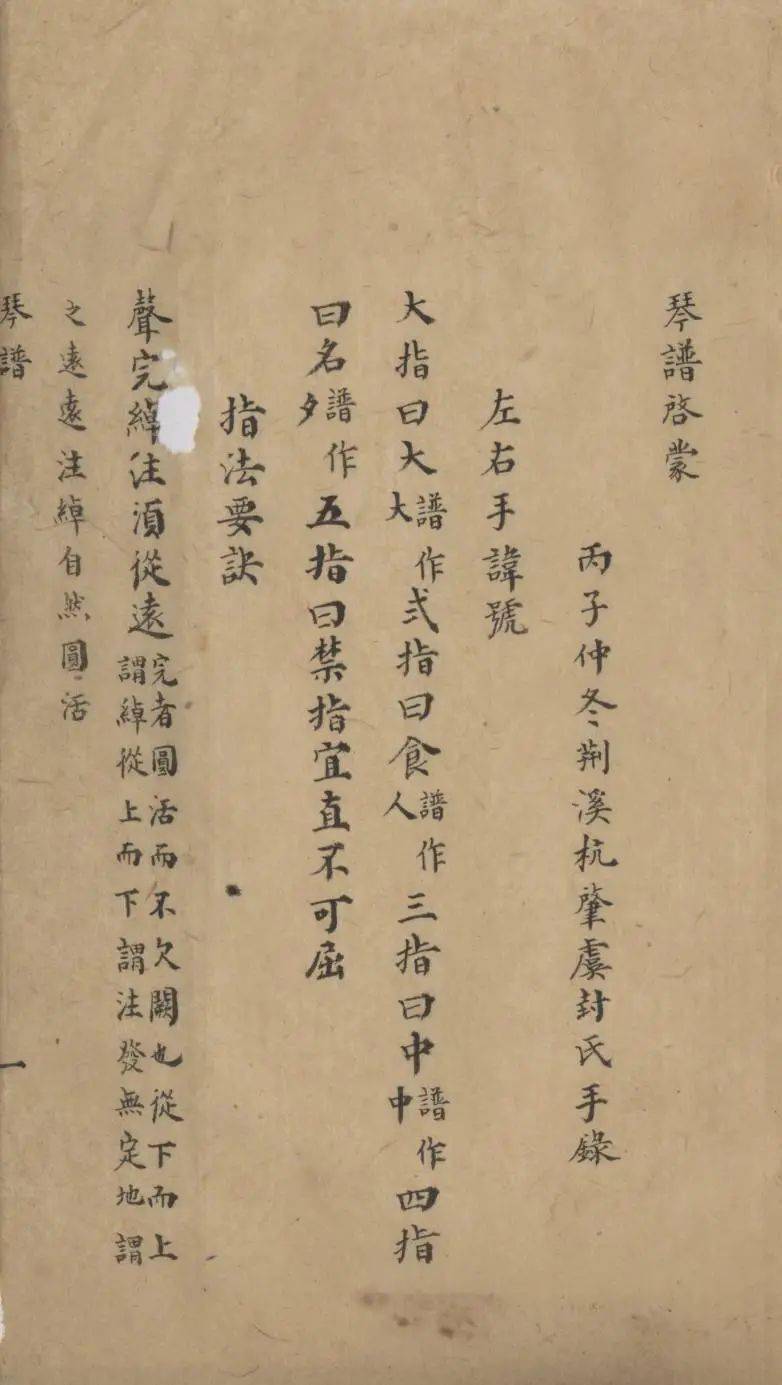 琴譜啓蒙
丙子仲冬荆溪杭肇虞封氏手錄
左右手諱號
大指曰大譜作大弍指曰食譜作人三指曰中譜作中四指
曰名譜作夕五指曰禁指宜直不可屈
指法要訣
聲完綽注須從遠完者圓活而不欠闕也從下而上謂綽從上而下謂注發無定地謂
之遠遠注綽自然圓活
琴譜
一